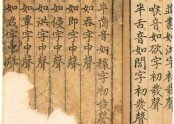 並書如洪字初發聲
喉音如欲字初發聲
半舌音如閭字初發聲
半齒音如穰字初發聲
如呑字中聲
如即字中聲
如侵字中聲
如洪字中聲
如覃字中聲
如君字中聲